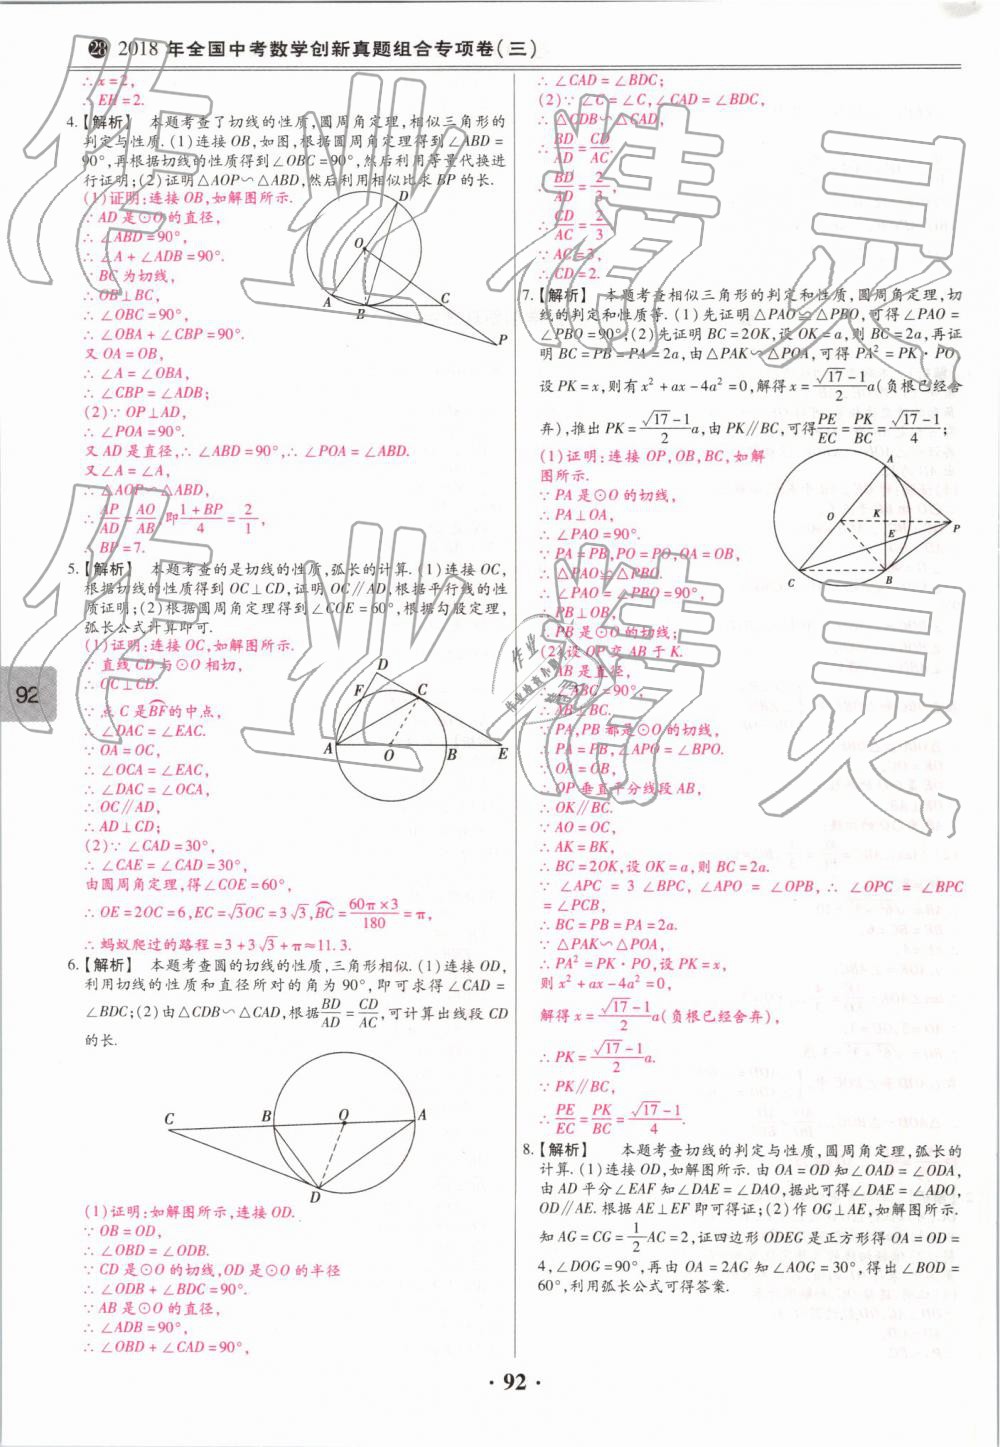 28 2018年全国中考数学创新真题组合专项卷(三)
∴x=2,
∴EH=2.
4.【解析】 本题考查了切线的性质,圆周角定理,相似三角形的
判定与性质.(1)连接OB,如图,根据圆周角定理得到∠ABD=
90°,再根据切线的性质得到∠OBC=90°,然后利用等量代换进
行证明;(2)证明△AOP∽△ABD,然后利用相似比求BP的长.
(1)证明:连接OB,如解图所示.
∵AD是⊙O的直径,
∴∠ABD=90°,
∴∠A+∠ADB=90°.
∵BC为切线,
∴OB⊥BC,
∴∠OBC=90°,
∴∠OBA+∠CBP=90°.
又OA=OB,
∴∠A=∠OBA,
∴∠CBP=∠ADB;
(2)∵OP⊥AD,
∴∠POA=90°.
又AD是直径,∴∠ABD=90°,∴∠POA=∠ABD.
又∠A=∠A,
∴△AOP∽△ABD,
∴AP/AD=AO/AB,即(1+BP)/4=2/1,
∴BP=7.
D
O
A
B
C
P
5.【解析】 本题考查的是切线的性质,弧长的计算.(1)连接OC,
根据切线的性质得到OC⊥CD,证明OC∥AD,根据平行线的性
质证明;(2)根据圆周角定理得到∠COE=60°,根据勾股定理,
弧长公式计算即可.
(1)证明:连接OC,如解图所示.
∵直线CD与⊙O相切,
∴OC⊥CD.
∵点C是BF的中点,
∴∠DAC=∠EAC.
∵OA=OC,
∴∠OCA=∠EAC,
∴∠DAC=∠OCA,
∴OC∥AD,
∴AD⊥CD;
(2)∵∠CAD=30°,
∴∠CAE=∠CAD=30°,
由圆周角定理,得∠COE=60°,
∴OE=2OC=6,EC=√3OC=3√3,BC=60π×3/180=π,
∴蚂蚁爬过的路程=3+3√3+π≈11.3.
D
F
C
A
O
B
E
6.【解析】 本题考查圆的切线的性质,三角形相似.(1)连接OD,
利用切线的性质和直径所对的角为90°,即可求得∠CAD=
∠BDC;(2)由△CDB∽△CAD,根据BD/AD=CD/AC,可计算出线段CD
的长.
C
B
O
A
D
(1)证明:如解图所示,连接OD.
∵OB=OD,
∴∠OBD=∠ODB.
∵CD是⊙O的切线,OD是⊙O的半径
∴∠ODB+∠BDC=90°.
∵AB是⊙O的直径,
∴∠ADB=90°,
∴∠OBD+∠CAD=90°,
∴∠CAD=∠BDC;
(2)∵∠C=∠C,∠CAD=∠BDC,
∴△CDB∽△CAD,
∴BD/AD=CD/AC.
∵BD/AD=2/3,
∴CD/AC=2/3.
∵AC=3,
∴CD=2.
7.【解析】 本题考查相似三角形的判定和性质,圆周角定理,切
线的判定和性质等.(1)先证明△PAO≌△PBO,可得∠PAO=
∠PBO=90°;(2)先证明BC=2OK,设OK=a,则BC=2a,再证
明BC=PB=PA=2a,由△PAK∽△POA,可得PA²=PK·PO,
设PK=x,则有x²+ax-4a²=0,解得x=(√17-1)/2 a(负根已经舍
弃),推出PK=(√17-1)/2 a,由PK∥BC,可得PE/EC=PK/BC=(√17-1)/4;
(1)证明:连接OP,OB,BC,如解
图所示.
∵PA是⊙O的切线,
∴PA⊥OA,
∴∠PAO=90°.
∵PA=PB,PO=PO,OA=OB,
∴△PAO≌△PBO.
∴∠PAO=∠PBO=90°,
∴PB⊥OB,
∴PB是⊙O的切线;
(2)设OP交AB于K.
∵AB是直径,
∴∠ABC=90°,
∴AB⊥BC.
∵PA,PB都是⊙O的切线,
∴PA=PB,∠APO=∠BPO.
∵OA=OB,
∴OP垂直平分线段AB,
∴OK∥BC.
∵AO=OC,
∴AK=BK,
∴BC=2OK,设OK=a,则BC=2a.
∵∠APC=3∠BPC,∠APO=∠OPB,∴∠OPC=∠BPC
=∠PCB,
∴BC=PB=PA=2a.
∵△PAK∽△POA,
∴PA²=PK·PO,设PK=x,
则x²+ax-4a²=0,
解得x=(√17-1)/2 a(负根已经舍弃),
∴PK=(√17-1)/2 a.
∵PK∥BC,
∴PE/EC=PK/BC=(√17-1)/4
A
O
K
P
E
C
B
8.【解析】 本题考查切线的判定与性质,圆周角定理,弧长的
计算.(1)连接OD,如解图所示.由OA=OD知∠OAD=∠ODA,
由AD平分∠EAF知∠DAE=∠DAO,据此可得∠DAE=∠ADO,
OD∥AE.根据AE⊥EF即可得证;(2)作OG⊥AE,如解图所示.
知AG=CG=1/2 AC=2,证四边形ODEG是正方形得OA=OD=
4,∠DOG=90°,再由OA=2AG知∠AOG=30°,得出∠BOD=
60°,利用弧长公式可得答案.
92
·92·
作业精灵
作业精灵